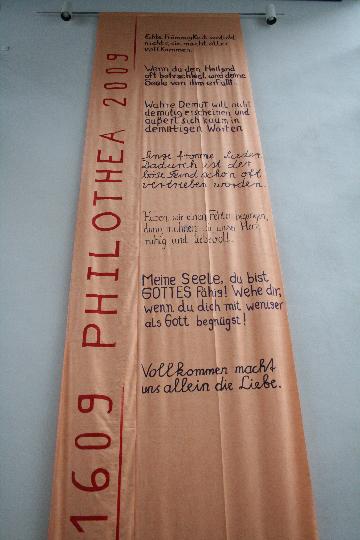 1609 PHILOTHEA 2009
Echte Frömmigkeit verdirbt
nichts, sie macht alles
vollkommen.
Wenn du den Heiland
oft betrachtest, wird deine
Seele von ihm erfüllt.
Wahre Demut will nicht
demütig erscheinen und
äußert sich kaum in
demütigen Worten
Singe fromme Lieder.
Dadurch ist der
böse Feind schon oft
vertrieben worden.
Haben wir einen Fehler begangen,
dann unser Herz
ruhig und liebevoll.
Meine Seele, du bist
GOTTES fähig! Wehe dir,
wenn du dich mit weniger
als Gott begnügst!
Vollkommen macht
uns allein die Liebe.